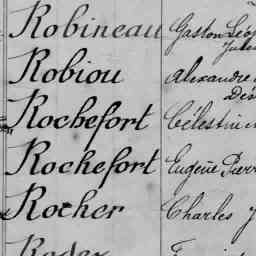 Robineau Gaston Léo
Jules
Robiou Alexandre
Dés
Rochefort Célestin
Rochefort Eugène Pierr
Rocher Charles J